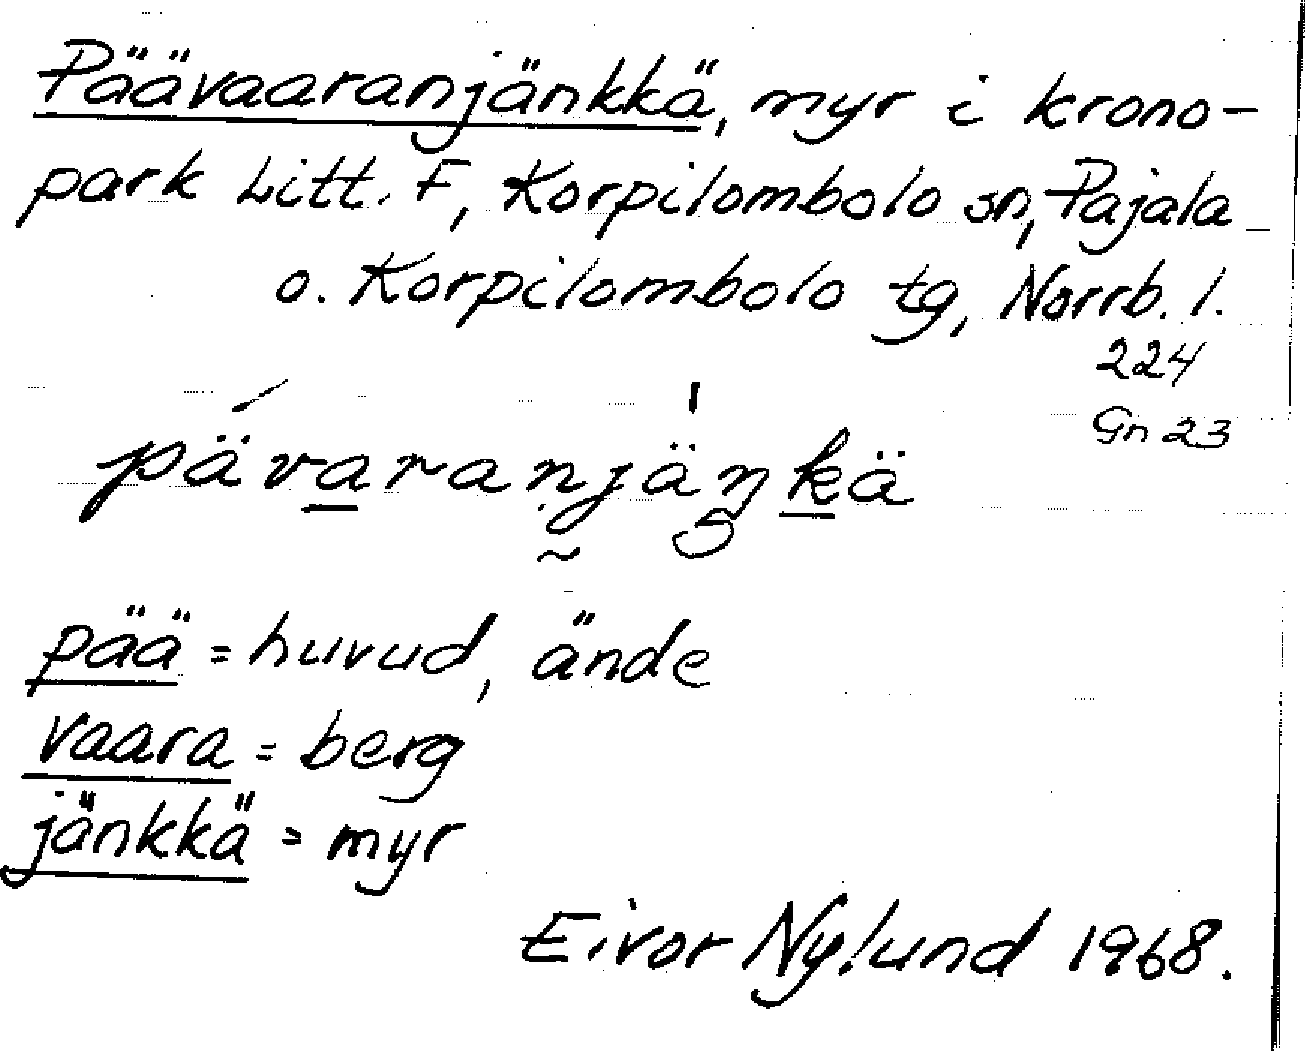 Päävaaranjänkkä, myr i krono-
park Litt. F, Korpilombolo sn, Pajala
o. Korpilombolo tg, Norrb. l.
224
Gn 23
pävaranjäŋkä
pää = huvud, ände
vaara = berg
jänkkä = myr
Eivor Nylund 1968.